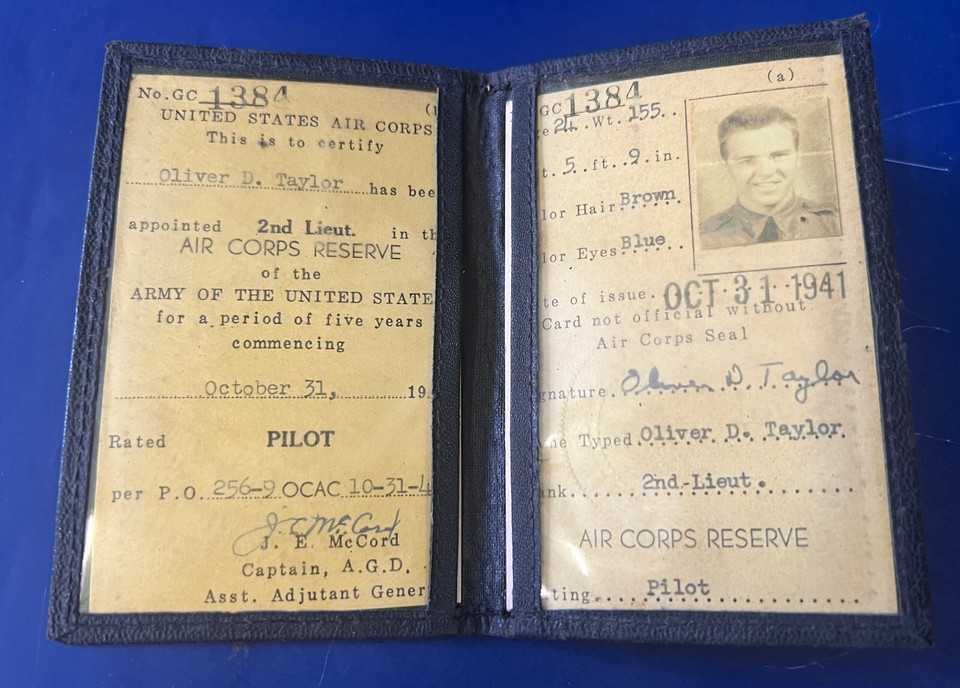 No. GC 1384 (
UNITED STATES AIR CORPS
This is to certify
Oliver D. Taylor has bee
appointed 2nd Lieut. in th
AIR CORPS RESERVE
of the
ARMY OF THE UNITED STATE
for a period of five years
commencing
October 31, 19
Rated PILOT
per P.O. 256-9 OCAC 10-31-4
J. E. McCord
Captain, A.G.D.
Asst. Adjutant Gener
(a)
GC 1384
e 21 Wt. 155
t. 5 ft. 9 in.
lor Hair Brown
lor Eyes Blue
te of issue. OCT 31 1941
Card not official without
Air Corps Seal
gnature. Oliver D. Taylor
me Typed. Oliver D. Taylor
ank 2nd Lieut.
AIR CORPS RESERVE
ting Pilot